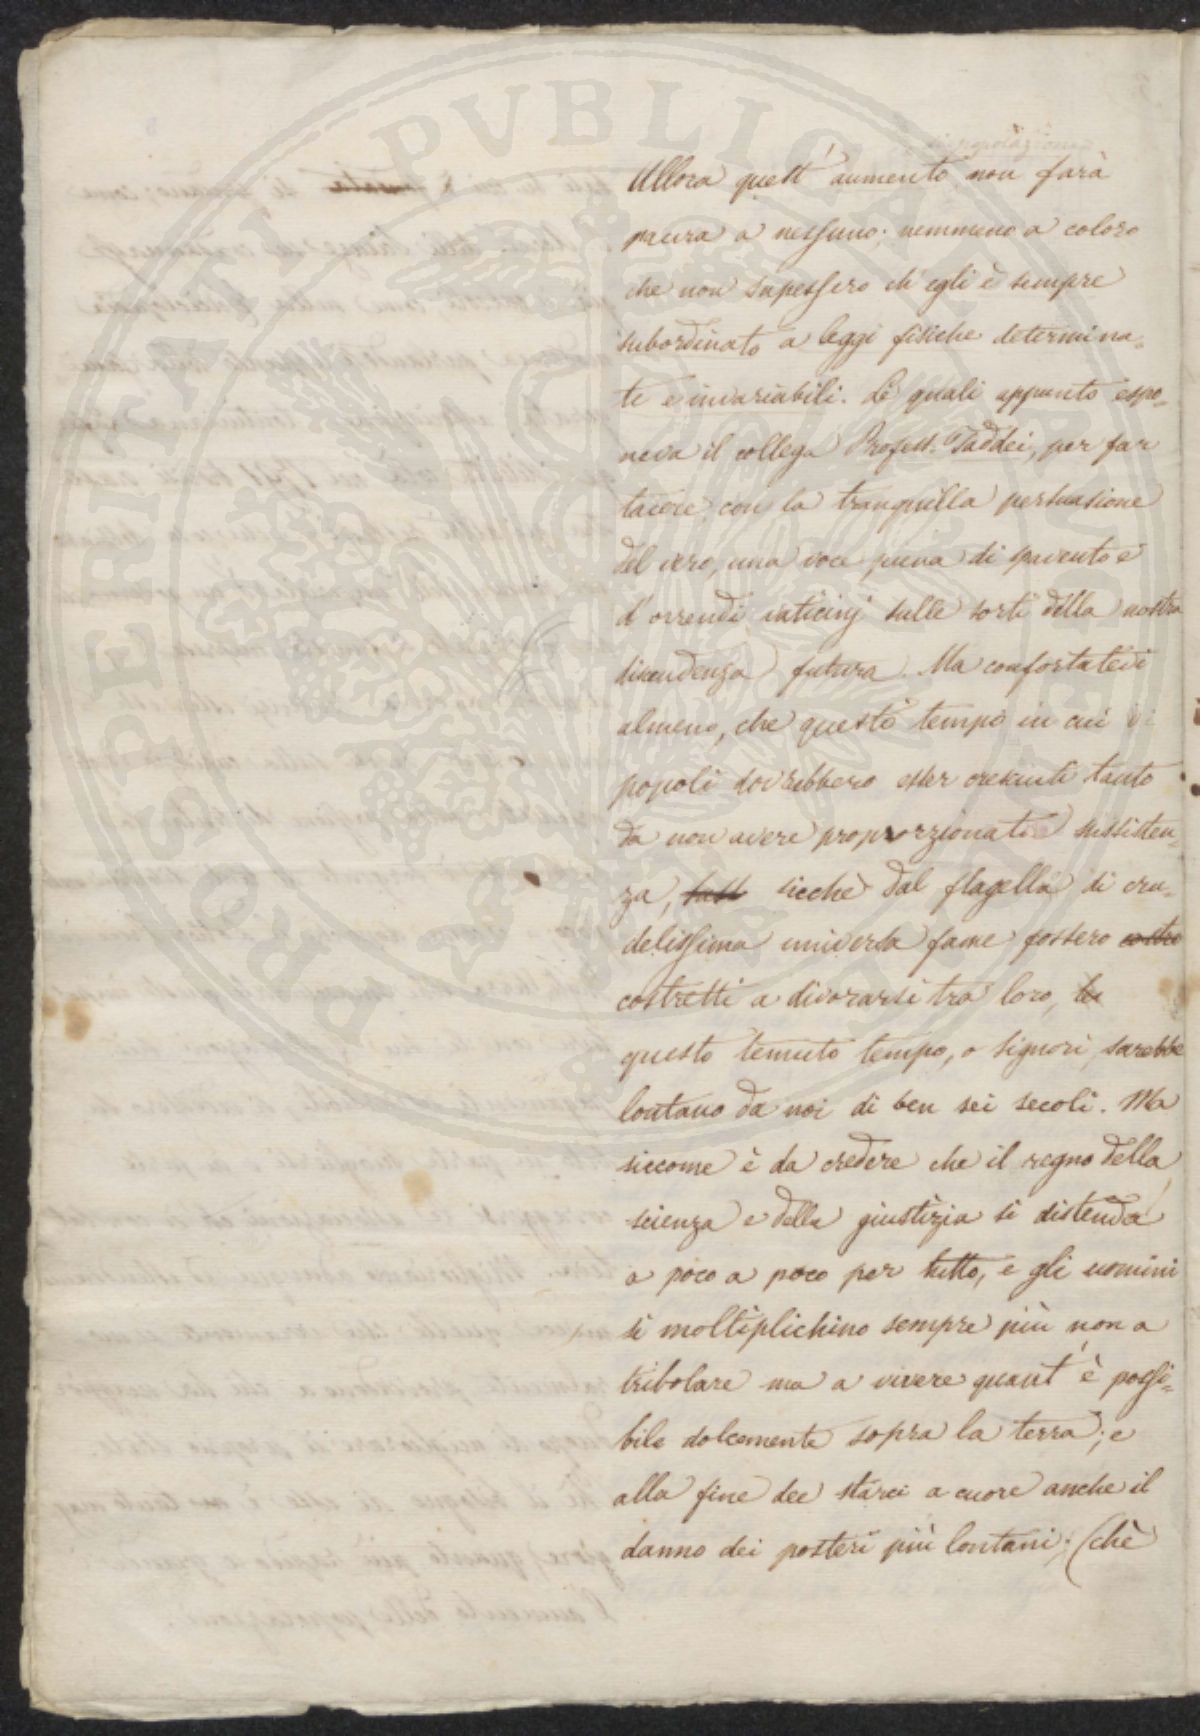 PROSPERITATI PUBLICAE
di popolazione
Allora quest' aumento non farà
paura a nessuno; nemmeno a coloro
che non sapessero ch' egli è sempre
subordinato a leggi fisiche determina=
te e invariabili. Le quali appunto espo=
neva il collega Profess. Taddei, per far
tacere con la tranquilla persuasione
del vero, una voce piena di spavento e
d' orrendi vaticinj sulle sorti della nostra
discendenza futura. Ma confortatevi
almeno, che questo tempo in cui i
popoli dovrebbero esser cresciuti tanto
da non avere proporzionata sussisten=
za, sicchè dal flagello di cru=
delissima universa fame fossero
costretti a divorarsi tra loro,
questo temuto tempo, o signori, sarebbe
lontano da noi di ben sei secoli. Ma
siccome è da credere che il regno della
scienza e della giustizia si distenda
a poco a poco per tutto, e gli uomini
si moltiplichino sempre più non a
tribolare ma a vivere quant' è possi=
bile dolcemente sopra la terra; e
alla fine dee starci a cuore anche il
danno dei posteri più lontani; (chè